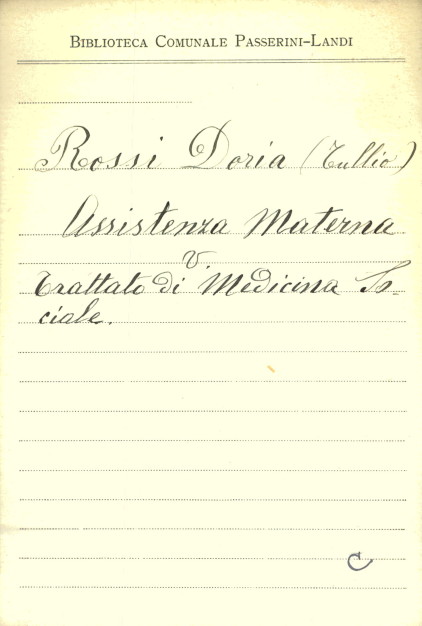 BIBLIOTECA COMUNALE PASSERINI-LANDI
Rossi Doria (Tullio)
Assistenza Materna
v.
Trattato di Medicina So-
ciale.
C